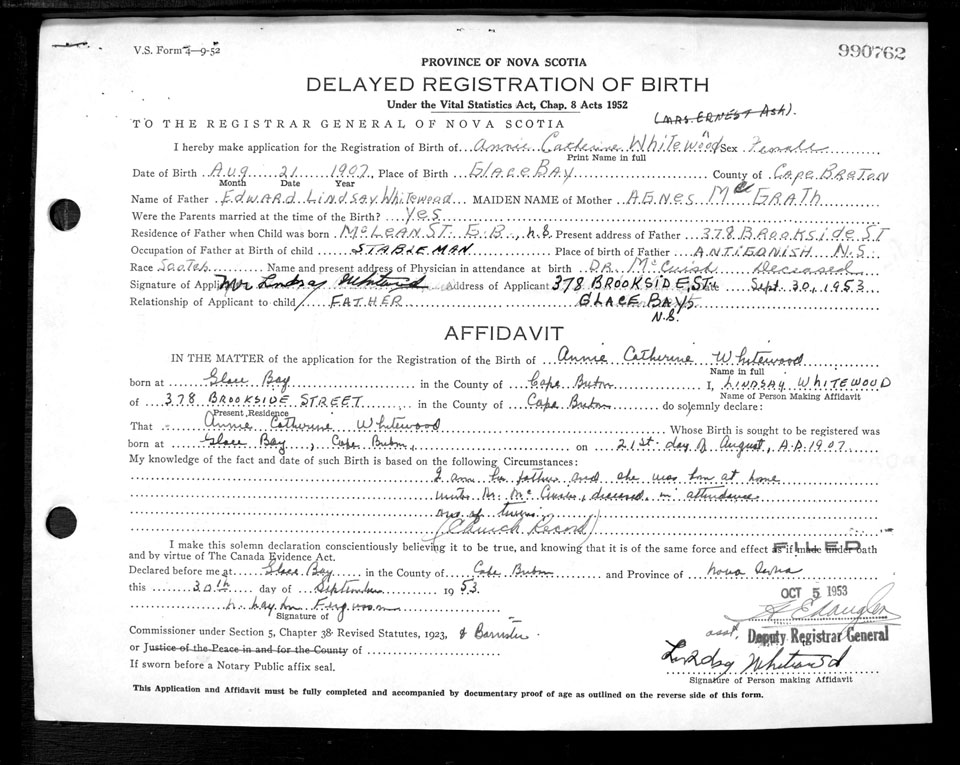 V.S. Form 4—9-52
990762
PROVINCE OF NOVA SCOTIA
DELAYED REGISTRATION OF BIRTH
Under the Vital Statistics Act, Chap. 8 Acts 1952
(MRS ERNEST ASH).
TO THE REGISTRAR GENERAL OF NOVA SCOTIA
I hereby make application for the Registration of Birth of Annie Catherine Whitewood Sex Female
Print Name in full
Date of Birth Aug 21 1907. Place of Birth GLACE BAY County of CAPE BRETON
Month Date Year
Name of Father EDWARD LINDSAY Whitewood MAIDEN NAME of Mother AGNES McGRATH
Were the Parents married at the time of the Birth? Yes
Residence of Father when Child was born McLEAN ST. G.B., N.S. Present address of Father 378 BROOKSIDE ST
Occupation of Father at Birth of child STABLEMAN Place of birth of Father ANTIGONISH N.S
Race Scotch Name and present address of Physician in attendance at birth DR. McCuish Deceased
Signature of Applicant Mr Lindsay Whitewood Address of Applicant 378 BROOKSIDE ST. Sept. 30, 1953
Relationship of Applicant to child FATHER GLACE BAY
N.S.
AFFIDAVIT
IN THE MATTER of the application for the Registration of the Birth of Annie Catherine Whitewood
Name in full
born at Glace Bay in the County of Cape Breton I, LINDSAY WHITEWOOD
Name of Person Making Affidavit
of 378 BROOKSIDE STREET in the County of Cape Breton do solemnly declare:
Present Residence
That Annie Catherine Whitewood Whose Birth is sought to be registered was
born at Glace Bay, Cape Breton, on 21st. day of August, A.D. 1907.
My knowledge of the fact and date of such Birth is based on the following Circumstances:
I am her father and she was born at home
under Dr. McCuish, deceased, in attendance
one of twins
(Church Record)
I make this solemn declaration conscientiously believing it to be true, and knowing that it is of the same force and effect as if made under oath
and by virtue of The Canada Evidence Act.
FILED
Declared before me at Glace Bay in the County of Cape Breton and Province of Nova Scotia
this 30th day of September 1953.
OCT 5 1953
Ferguson
Signature of
asst. Deputy Registrar General
Commissioner under Section 5, Chapter 38 Revised Statutes, 1923, & Barrister.
or Justice of the Peace in and for the County of
Lindsay Whitewood
If sworn before a Notary Public affix seal.
Signature of Person making Affidavit
This Application and Affidavit must be fully completed and accompanied by documentary proof of age as outlined on the reverse side of this form.